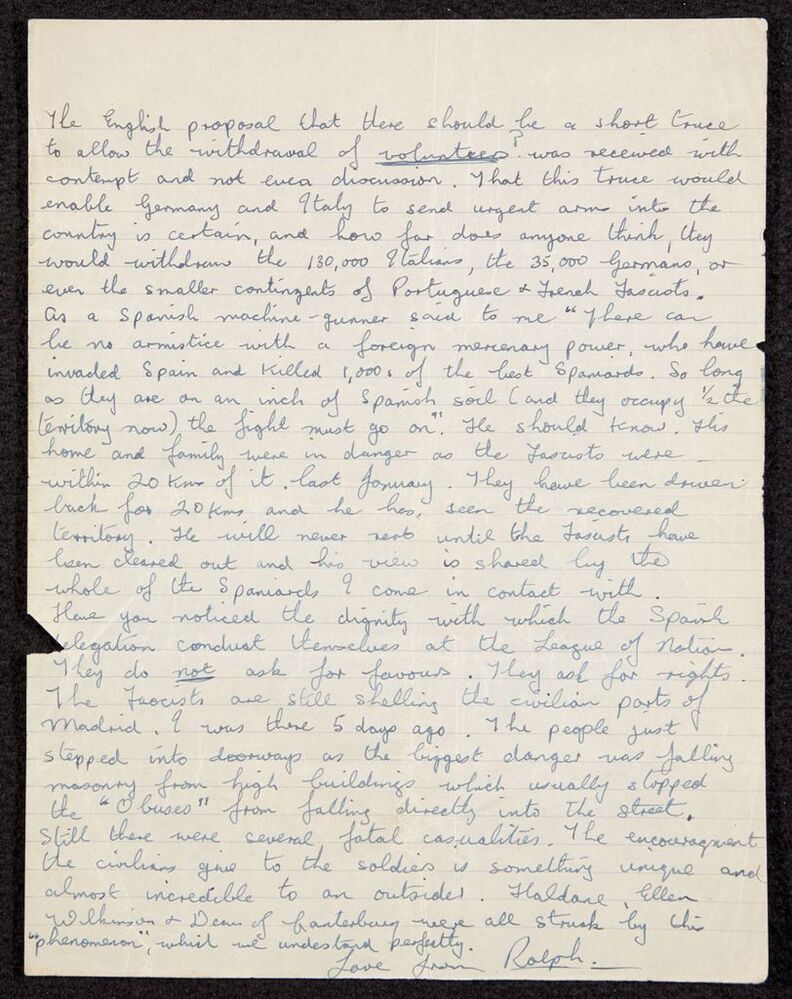 The English proposal that there should be a short truce
to allow the withdrawal of volunteers? was received with
contempt and not even discussion. That this truce would
enable Germany and Italy to send urgent arms into the
country is certain, and how far does anyone think, they
would withdraw the 130,000 Italians, the 35,000 Germans, or
even the smaller contingents of Portuguese & French Fascists.
As a Spanish machine-gunner said to me "There can
be no armistice with a foreign mercenary power, who have
invaded Spain and Killed 1,000s of the best Spaniards. So long
as they are on an inch of Spanish soil (and they occupy 1/2 the
territory now) the fight must go on". He should know. His
home and family were in danger as the Fascists were
within 20 Kms of it last January. They have been driven
back for 20 Kms and he has, seen the recovered
territory. He will never rest until the Fascists have
been cleared out and his view is shared by the
whole of the Spaniards I come in contact with.
Have you noticed the dignity with which the Spanish
delegation conduct themselves at the League of Nations.
They do not ask for favours. They ask for rights.
The Fascists are still shelling the civilian parts of
Madrid. I was there 5 days ago. The people just
stepped into doorways as the biggest danger was falling
masonry from high buildings which usually stopped
the "Obuses" from falling directly into the street.
Still there were several fatal casualities. The encouragment
the civilians give to the soldiers is something unique and
almost incredible to an outsider. Haldane, Ellen
Wilkinson & Dean of Canterbury were all struck by this
"phenomenon", which we understand perfectly.
Love from Ralph.